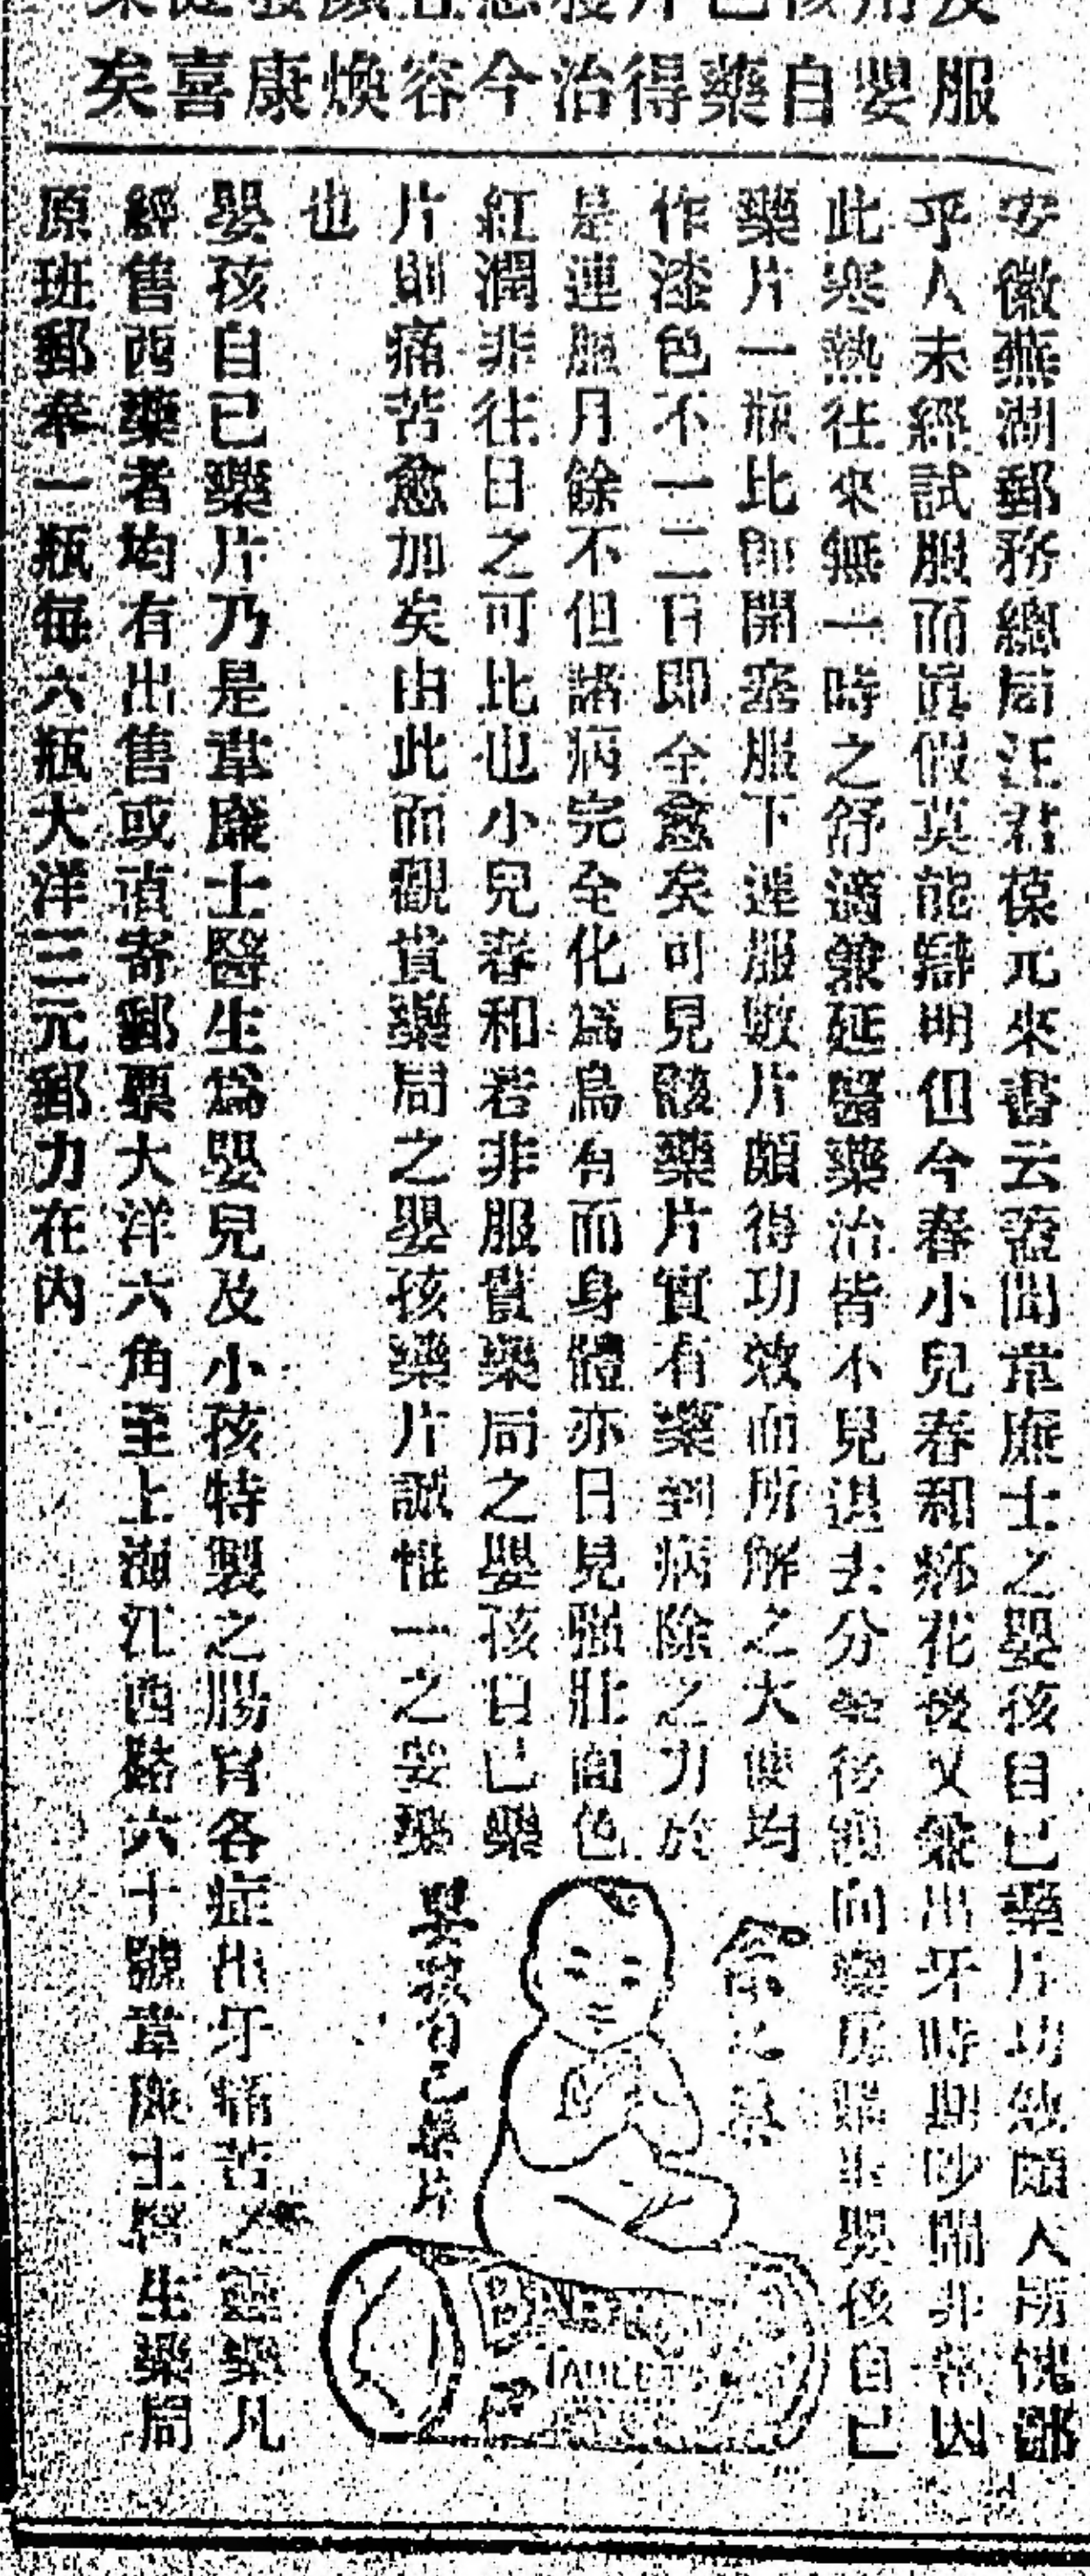 服嬰自藥得治今容煥康喜矣
安徽蕪湖郵務總局汪君葆元來書云證聞韋廉士之嬰孩自己藥片功效頗人所愧鄙
乎人未經試服而眞假莫能辯明但今春小兒春和痧花後又兼出牙時期吵鬧非常因
此寒熱往來無一時之舒適兼延醫藥治皆不見退去分毫後購向藥房單出嬰孩自己
藥片一瓶比即開塞服下連服數片頗得功效而所解之大便均
作漆色不一二日即全愈矣可見該藥片實有藥到病除之力於
是連服月餘不但諸病完全化爲烏有而身體亦日見强壯面色
紅潤非往日之可比也小兒春和若非服貴藥局之嬰孩自己藥
片則痛苦愈加矣由此而觀貴藥局之嬰孩藥片誠惟一之妥藥
也
嬰孩自己藥片
BABY
TABLETS
嬰孩自己藥片乃是韋廉士醫生爲嬰兒及小孩特製之腸胃各症出牙痛苦之靈藥凡
經售西藥者均有出售或直寄郵票大洋六角至上海江西路六十號韋廉士醫生藥局
原班郵奉一瓶每六瓶大洋三元郵力在內